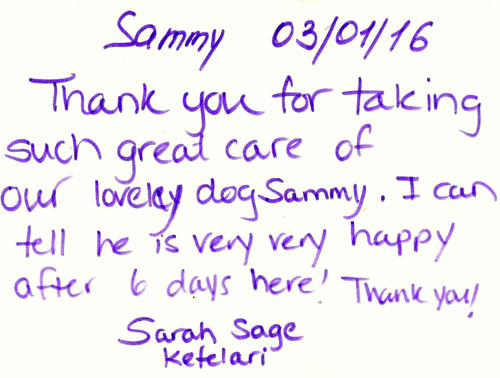 Sammy 03/01/16
Thank you for taking
such great care of
our lovely dog Sammy. I can
tell he is very very happy
after 6 days here! Thank you!
Sarah Sage
Ketelari